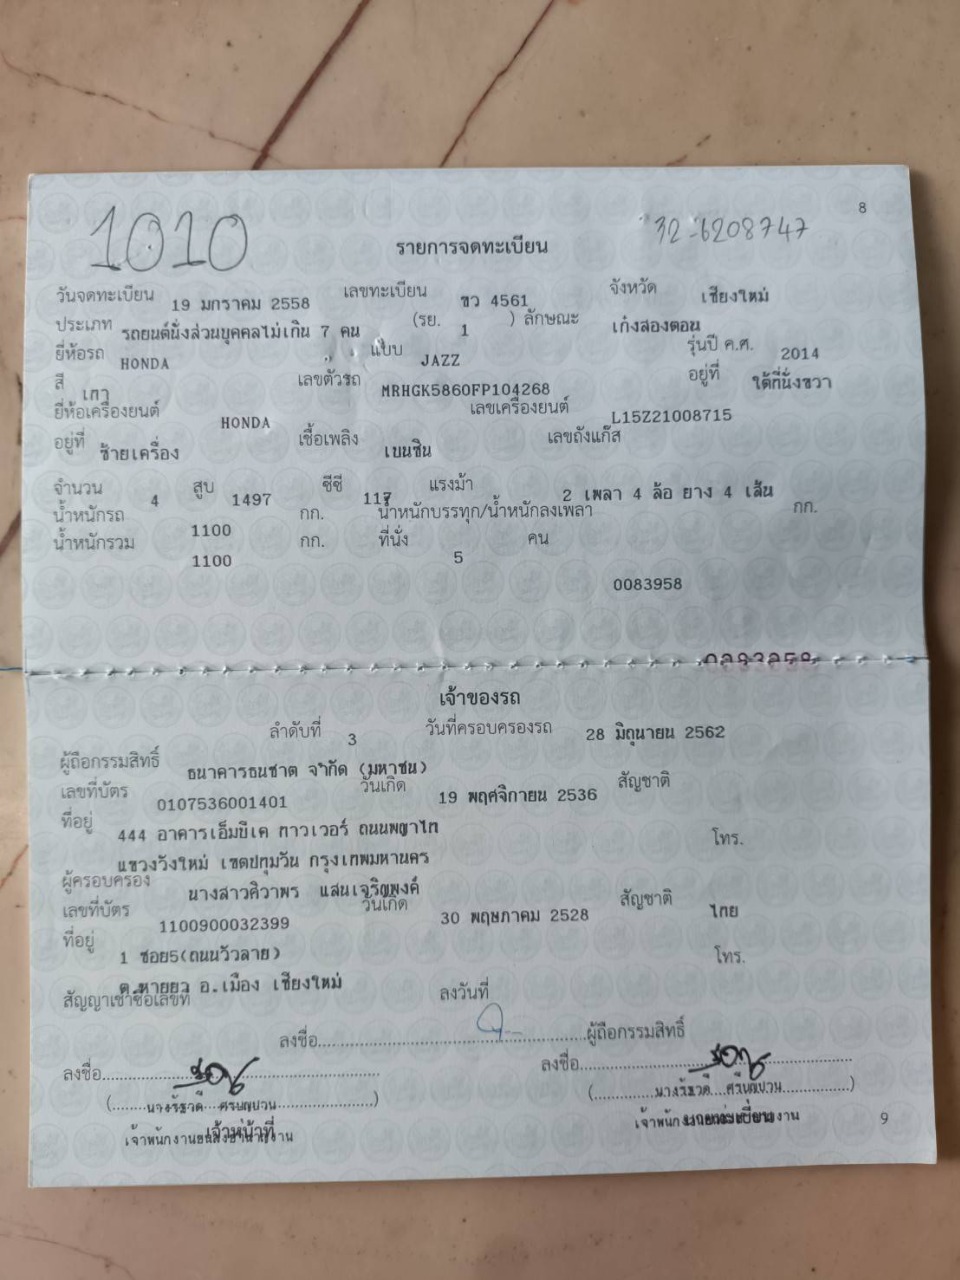 8
1010
32-6208747
รายการจดทะเบียน
วันจดทะเบียน 19 มกราคม 2558 เลขทะเบียน ขว 4561 จังหวัด เชียงใหม่
ประเภท รถยนต์นั่งส่วนบุคคลไม่เกิน 7 คน (รย. 1 ) ลักษณะ เก๋งสองตอน
ยี่ห้อรถ HONDA แบบ JAZZ รุ่นปี ค.ศ. 2014
สี เทา เลขตัวรถ MRHGK5860FP104268 อยู่ที่ ใต้ที่นั่งขวา
ยี่ห้อเครื่องยนต์ HONDA เลขเครื่องยนต์ L15Z21008715
อยู่ที่ ซ้ายเครื่อง เชื้อเพลิง เบนซิน เลขถังแก๊ส
จำนวน 4 สูบ 1497 ซีซี 117 แรงม้า 2 เพลา 4 ล้อ ยาง 4 เส้น
น้ำหนักรถ 1100 กก. น้ำหนักบรรทุก/น้ำหนักลงเพลา กก.
น้ำหนักรวม 1100 กก. ที่นั่ง 5 คน
0083958
0083958
เจ้าของรถ
ลำดับที่ 3 วันที่ครอบครองรถ 28 มิถุนายน 2562
ผู้ถือกรรมสิทธิ์ ธนาคารธนชาต จำกัด (มหาชน)
เลขที่บัตร 0107536001401 วันเกิด 19 พฤศจิกายน 2536 สัญชาติ
ที่อยู่ 444 อาคารเอ็มบีเค ทาวเวอร์ ถนนพญาไท
แขวงวังใหม่ เขตปทุมวัน กรุงเทพมหานคร โทร.
ผู้ครอบครอง นางสาวศิวาพร แสนเจริญพงค์
เลขที่บัตร 1100900032399 วันเกิด 30 พฤษภาคม 2528 สัญชาติ ไทย
ที่อยู่ 1 ซอย5(ถนนวัวลาย) โทร.
ต.หายยา อ.เมือง เชียงใหม่
สัญญาเช่าซื้อเลขที่ ลงวันที่
ลงชื่อ ผู้ถือกรรมสิทธิ์
ลงชื่อ ลงชื่อ
เจ้าหน้าที่
9